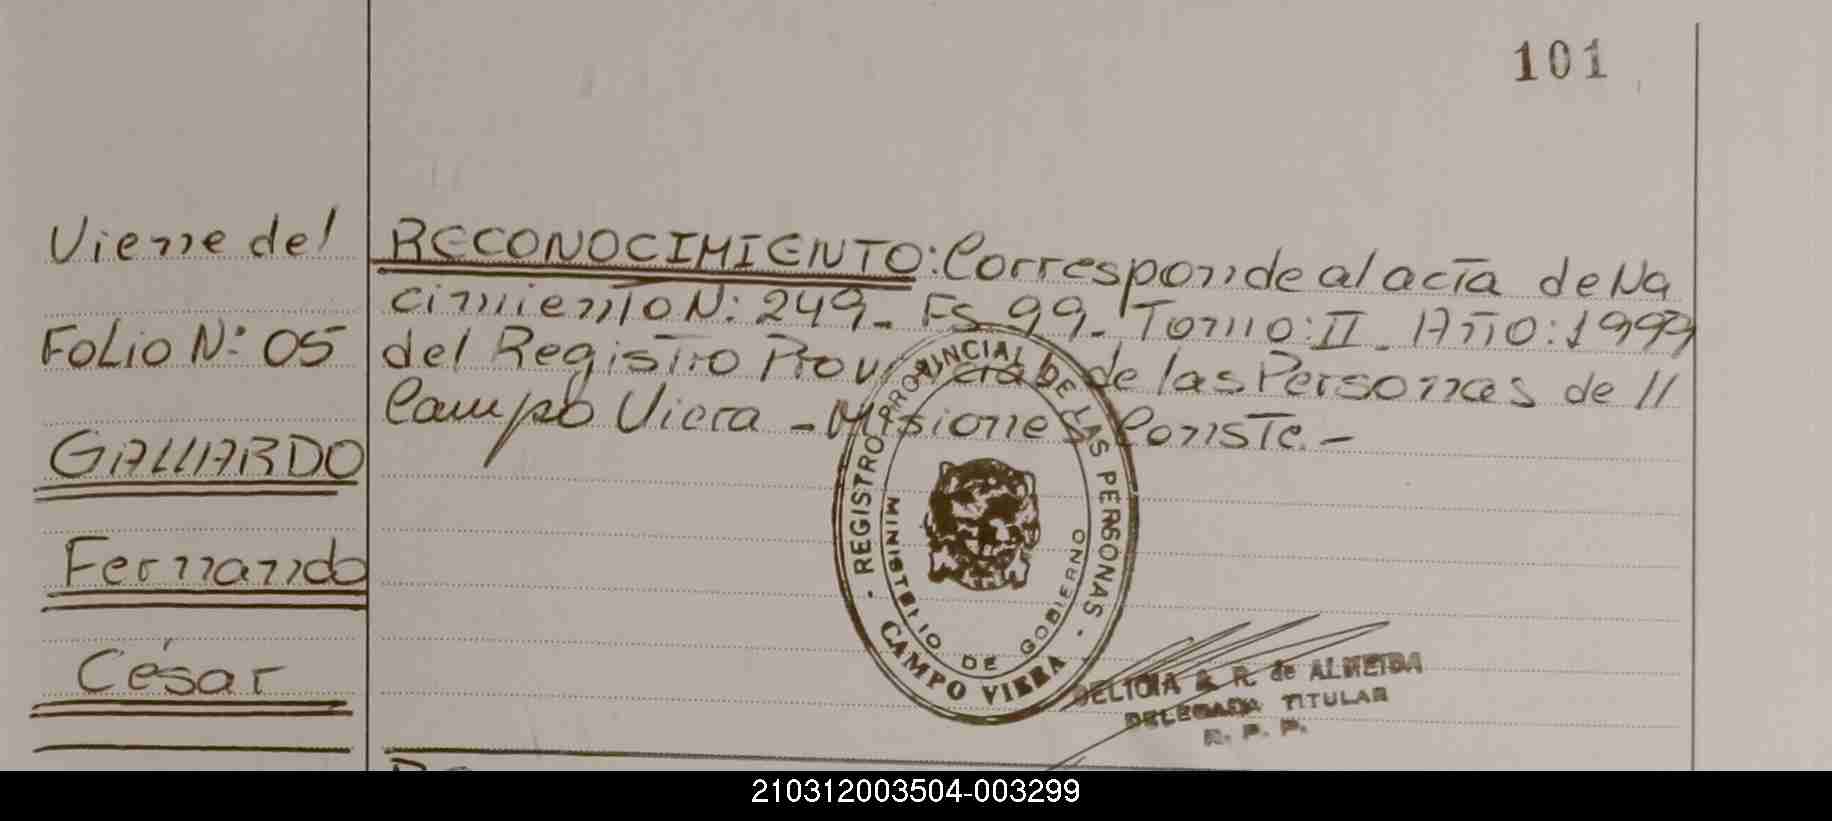 101
Viene del
Folio N: 05
GALLARDO
Fernando
César
RECONOCIMIENTO: Corresponde al acta de Na
cimiento N: 249_ Fs 99_ Tomo: II_ Año: 1999
del Registro Provincial de las Personas de //
Campo Viera - Misiones Conste.-
· REGISTRO PROVINCIAL DE LAS PERSONAS ·
MINISTERIO DE GOBIERNO
CAMPO VIERA
DELICIA R. de ALMEIDA
DELEGADA TITULAR
R. P. P.
210312003504-003299